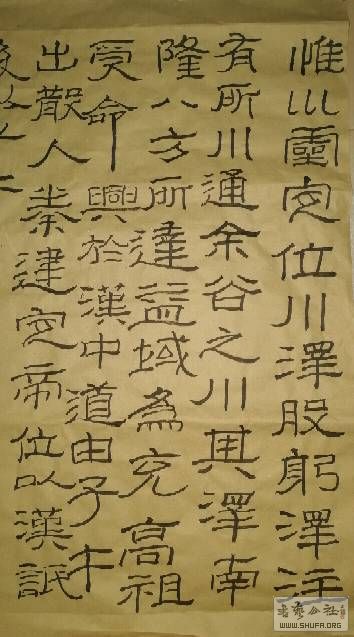 惟巛靈定位川澤股躬澤注
有所川通余谷之川其澤南
隆八方所達益域為充高祖
受命興於漢中道由子午
出散入秦建定帝位以漢詆
书艺公社
WWW.SHUFA.ORG